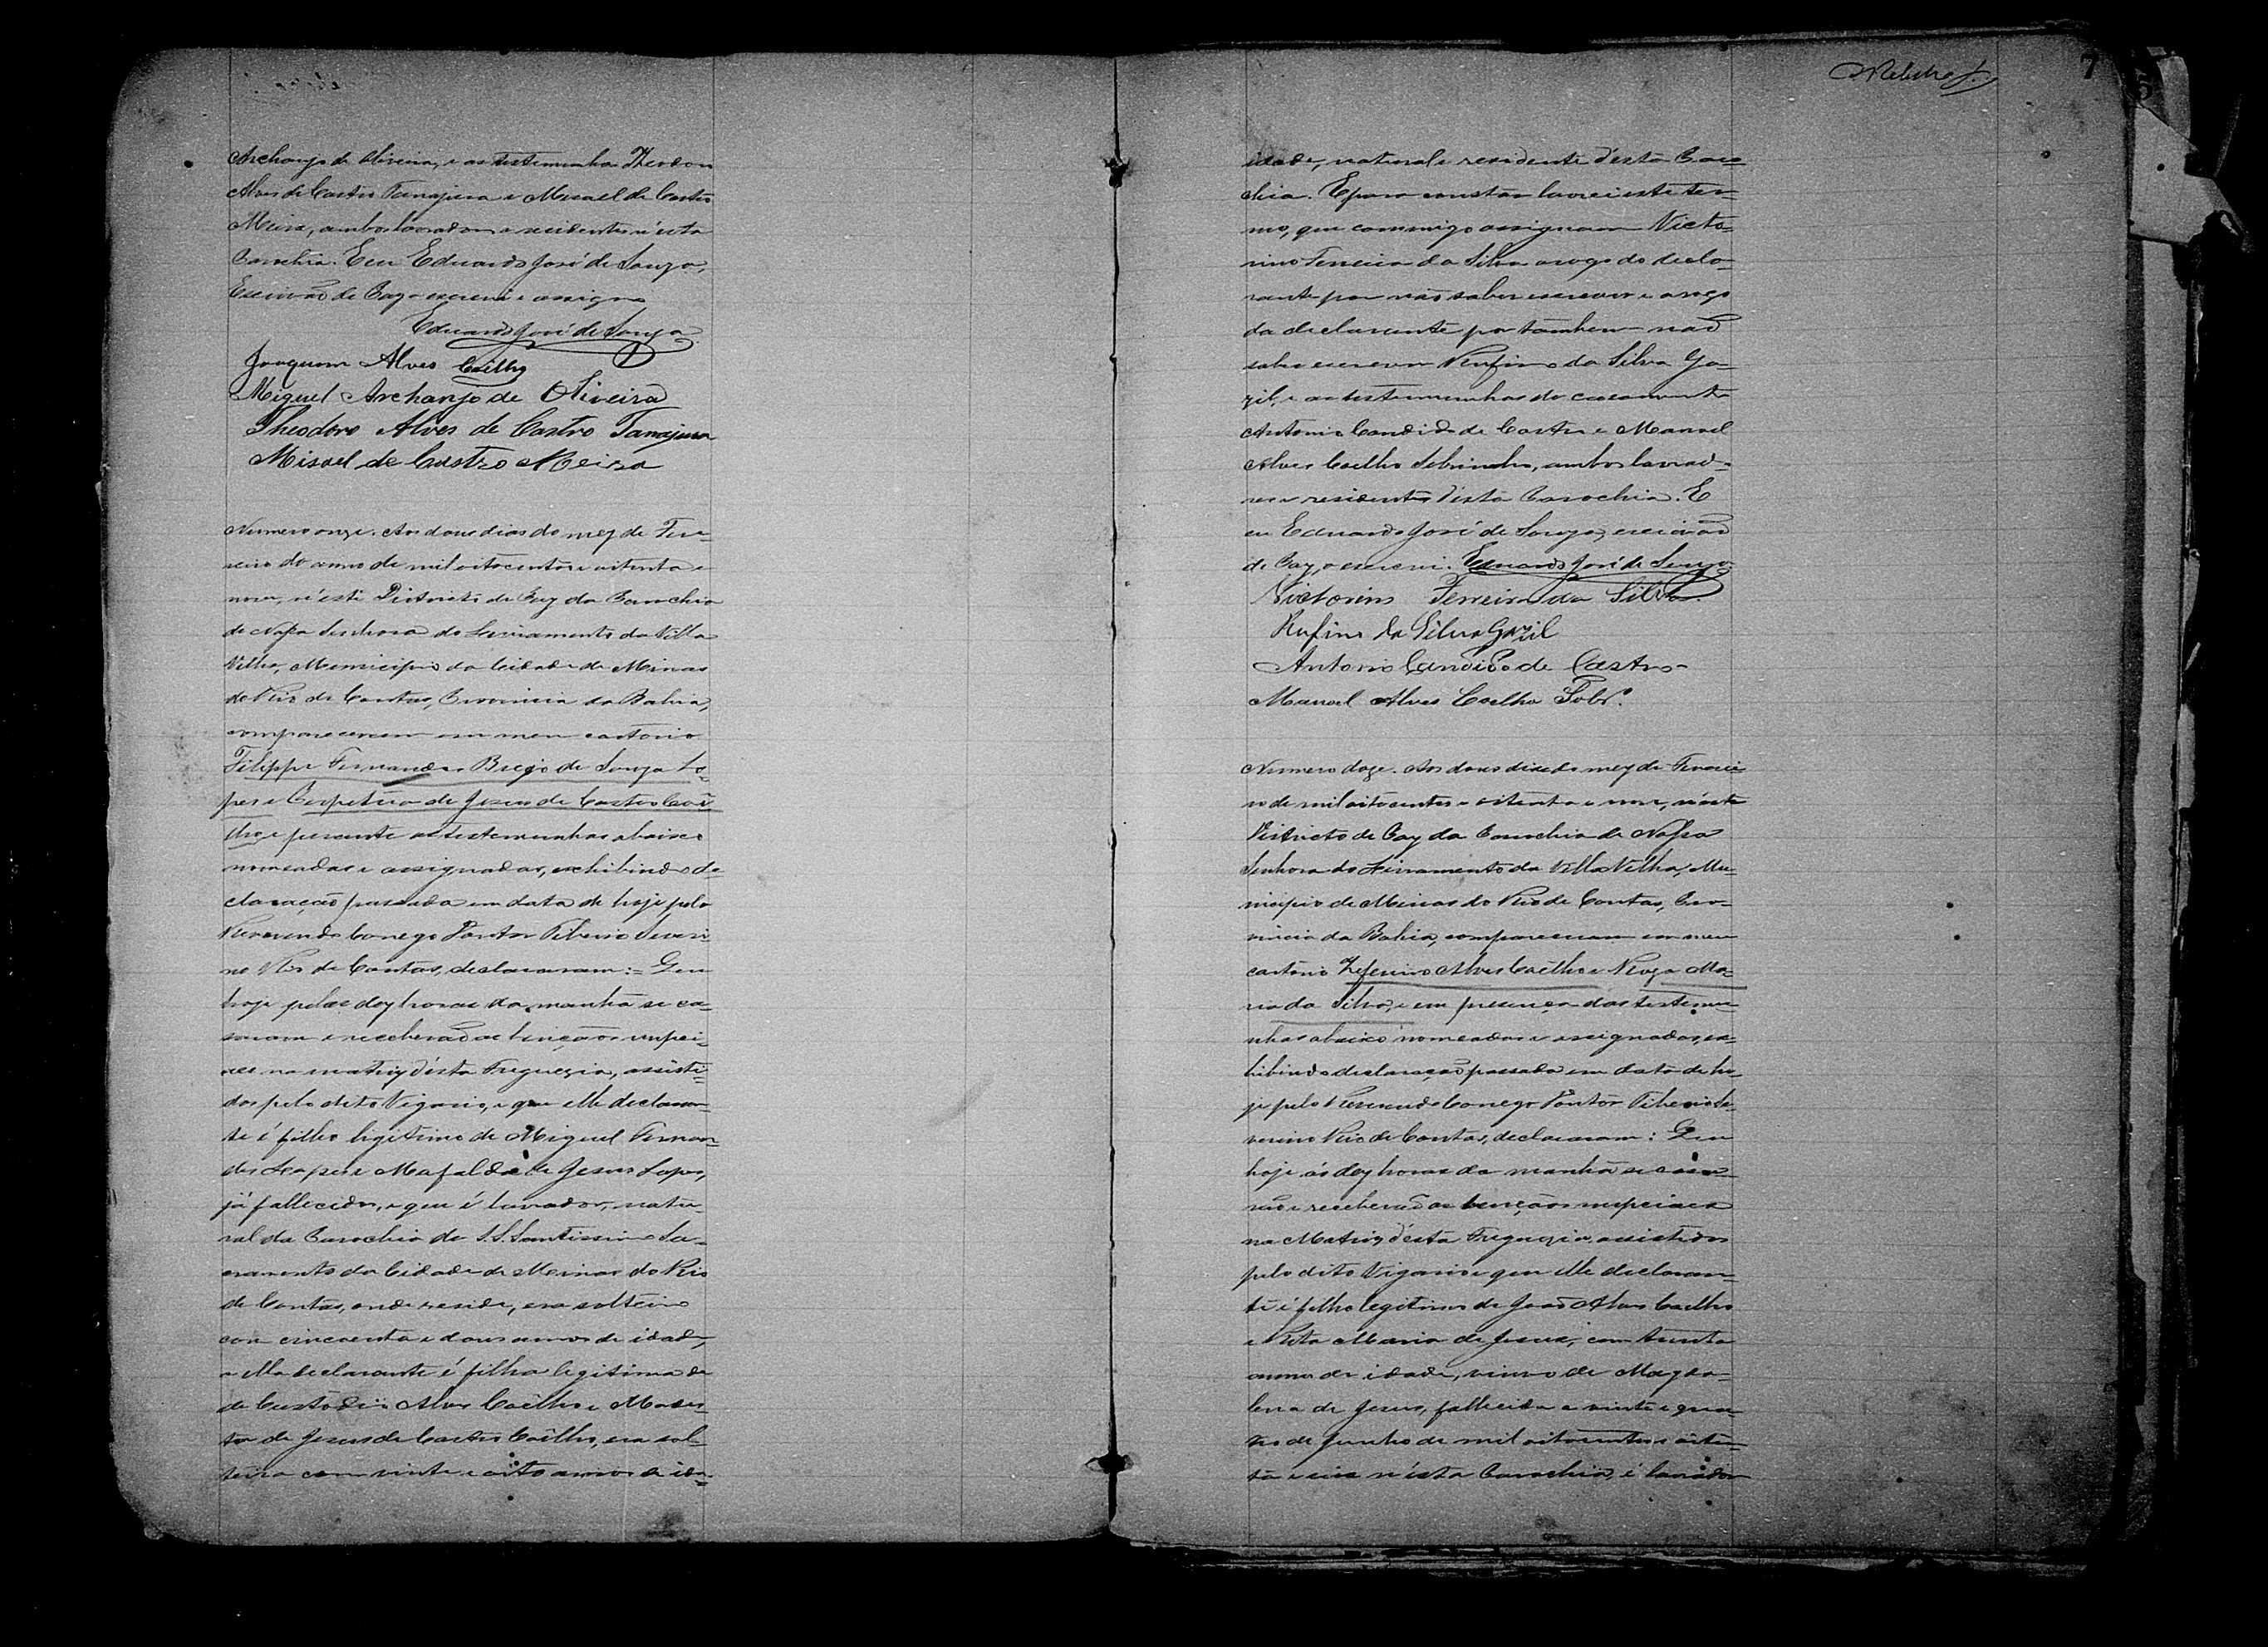 Archanjo de Oliveira, e as testemunhas Theodoro
Alves de Castro Tanajura e Misael de Castro
Meira, ambos lavradores e residentes n'esta
Parochia. E eu Eduardo José de Souza,
Escrivão de Paz o escrevi e assigno
Eduardo José de Souza
Joaquim Alves Coêlho
Miguel Archanjo de Oliveira
Theodoro Alves de Castro Tanajura
Misael de Castro Meira
Numero onze. Aos dous dias do mez de Feve-
reiro do anno de mil oitocentos e oitenta e
nove, n'este Districto de Paz da Parochia
de Nossa Senhora do Livramento da Villa
Velha, Municipio da Cidade de Minas
do Rio de Contas, Provincia da Bahia,
compareceram em meu cartorio
Filippe Fernandes Brejo de Souza Lo-
pes e Perpetua de Jesus de Castro Coê-
lho e perante as testemunhas abaixo
nomeadas e assignadas, exhibindo de-
claração passada em data de hoje pelo
Reverendo Conego Pastor Tiberio Severi-
no Rio de Contas, declararam: = Que
hoje pelas dez horas da manhã se ca-
saram e receberão as bençãos nupci-
aes na matriz d'esta Freguezia, assisti-
dos pelo dito Vigario, e que elle declaran-
te é filho ligitimo de Miguel Fernan-
des Lopes e Mafalda de Jesus Lopes,
já fallecidos, e que é lavrador, natu-
ral da Parochia do S.S. Santissimo Sa-
cramento da Cidade de Minas do Rio
de Contas, onde reside, era solteiro
com cincoenta e dous annos de idade,
e ella declarante é filha legitima de
de Custodio Alves Coêlho e Modes-
ta de Jesus de Castro Coêlho, era sol-
teira com vinte e oito annos de ida-
7
idade, natural e residente d'esta Paro-
chia. E para constar lavrei este ter-
mo, que commigo assignam Victo-
rino Ferreira da Silva a rogo do decla-
rante por não saber escrever e a rogo
da declarante por tambem não
saber escrever Rufino da Silva Ga-
zil, e as testemunhas do casamento
Antonio Candido de Castro e Manoel
Alves Coelho Sobrinho, ambos lavrado-
res e residentes d'esta Parochia. E
eu Eduardo José de Souza, escrivão
de Paz, o escrevi. Eduardo José de Souza
Victorino Ferreira da Silva.
Rufino da Silva Gazil
Antonio Candido de Castro
Manoel Alves Coelho Sobr.º
Numero doze. Aos dous dias do mez de Feverei-
ro de mil oitocentos e oitenta e nove, n'este
Districto de Paz da Parochia de Nossa
Senhora do Livramento da Villa Velha, Mu-
nicipio de Minas do Rio de Contas, Pro-
vincia da Bahia, compareceram em meu
cartorio Zeferino Alves Coêlho e Ma-
ria da Silva, e em presença das testemu-
nhas abaixo nomeadas e assignadas, ex-
hibindo declaração passada em data de ho-
je pelo Reverendo Conego Pastor Tiberio Se-
verino Rio de Contas, declararam: Que
hoje ás dez horas da manhã se casa-
rão e receberão as bençãos nupciaes
na Matriz d'esta Freguezia assistidos
pelo dito Vigario e que elle declaran-
te é filho legitimo de João Alves Coelho
e Rita Maria de Jesus, com trinta
annos de idade, viuvo de Magda-
lena de Jesus, fallecida a vinte e qua-
tro de Junho de mil oitocentos e oiten-
ta e seis n'esta Parochia, é lavrador